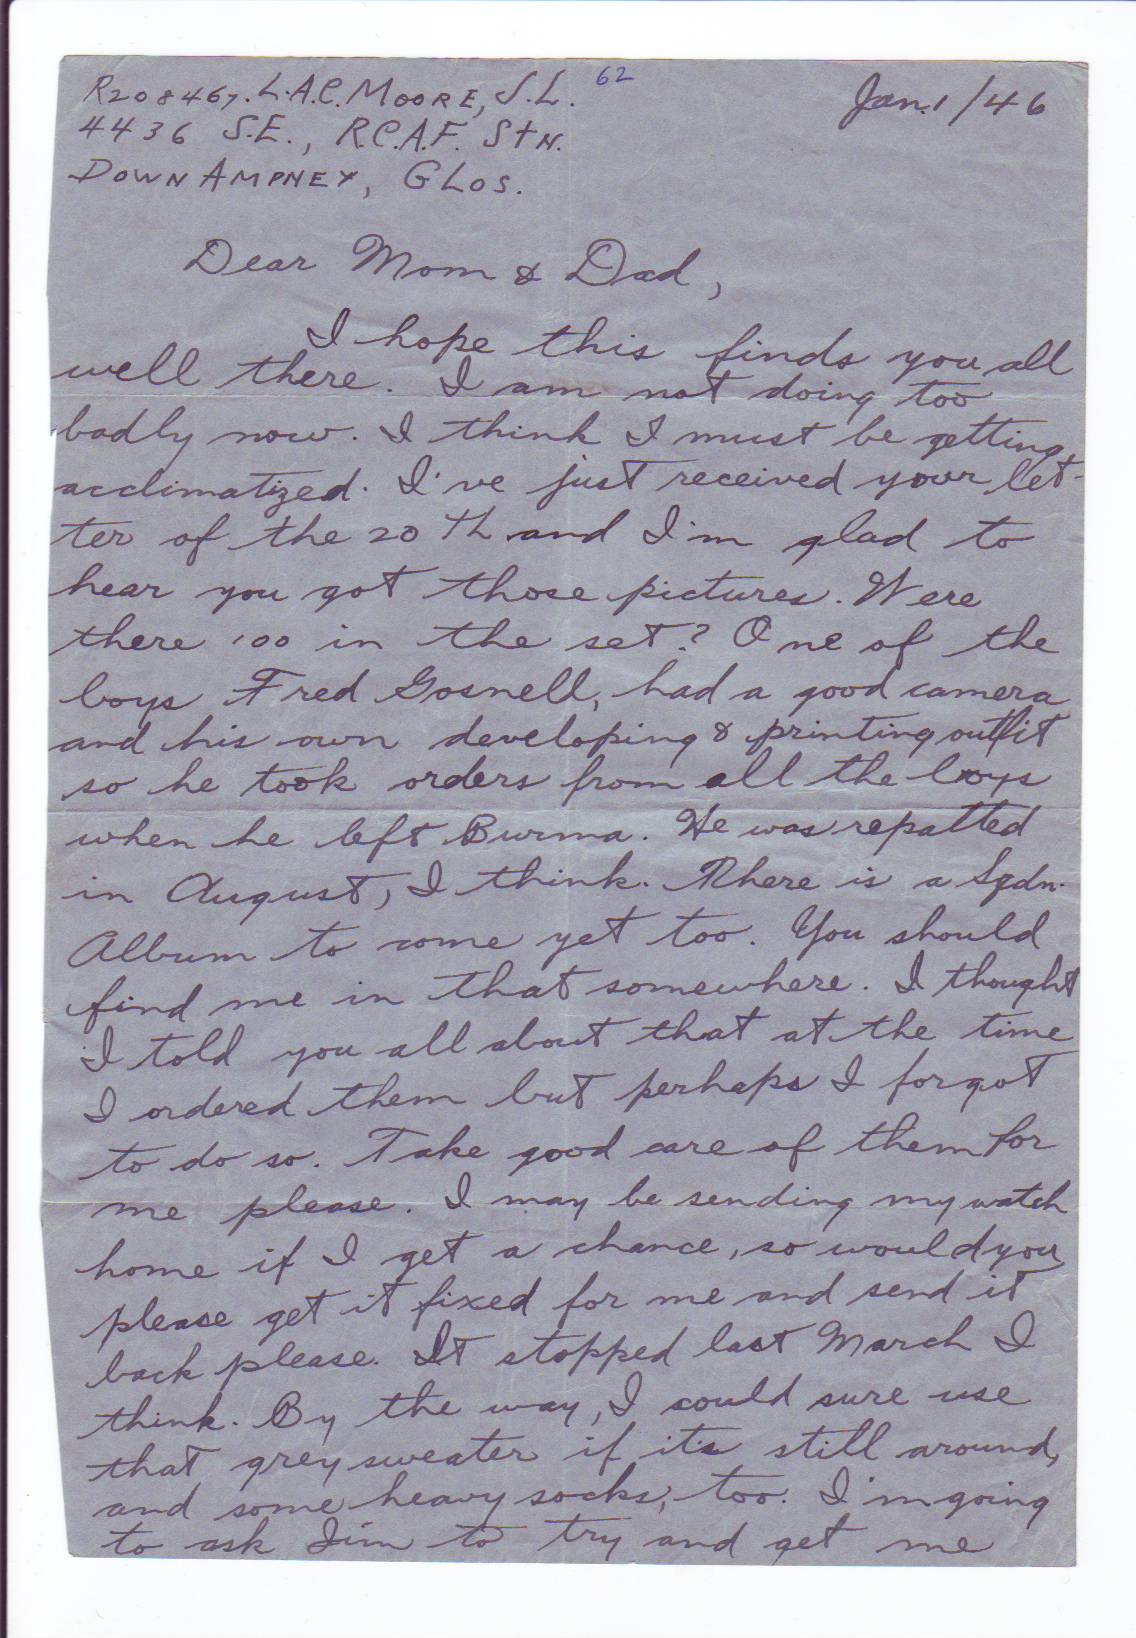 62
R208467. L.A.C. MOORE, S.L. Jan. 1/46
4436 S.E., R.C.A.F. STN.
DOWN AMPNEY, GLOS.
Dear Mom & Dad,
I hope this finds you all
well there. I am not doing too
badly now. I think I must be getting
acclimatized. I've just received your let-
ter of the 20 th and I'm glad to
hear you got those pictures. Were
there 100 in the set? One of the
boys Fred Gosnell, had a good camera
and his own developing & printing outfit
so he took orders from all the boys
when he left Burma. He was repatted
in August, I think. There is a Sqdn.
Album to come yet too. You should
find me in that somewhere. I thought
I told you all about that at the time
I ordered them but perhaps I forgot
to do so. Take good care of them for
me please. I may be sending my watch
home if I get a chance, so would you
please get it fixed for me and send it
back please. It stopped last March I
think. By the way, I could sure use
that grey sweater if it's still around,
and some heavy socks, too. I'm going
to ask Jim to try and get me